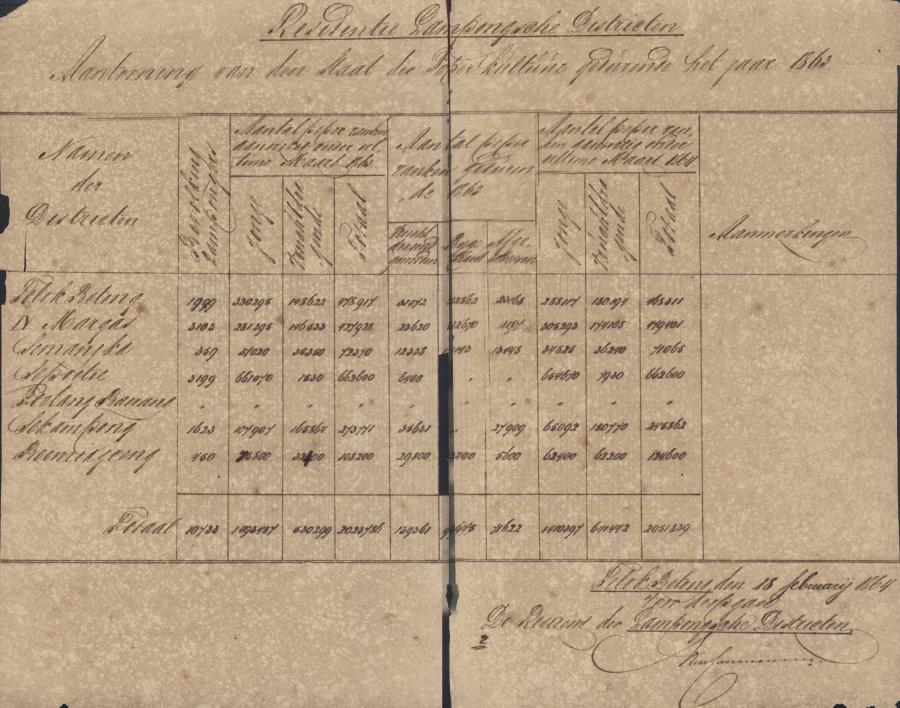 Residentie Lampongsche Districten
Aantooning van den Staat der Peper kultuur gedurende het jaar 1863
Namen der Districten
Bevolking Lampongers
Aantal peper ranken aanwezig onder ultimo Maart 1863
Jonge
Vruchtdragende
Totaal
Aantal peper ranken geduren de 1863
Vrucht dragend geworden
Bijge plant
Afge storven
Aantal peper ranken aanwezig onder ultimo Maart 1864
Jonge
Vruchtdragende
Totaal
Aanmerkingen
Telok Betong 1999 330295 148622 478917 31572 288117 180194 468311
IV Margas 3103 281295 146633 427928 33620 305293 174108 479401
Semangka 359 37020 35350 72370 12338 13643 34825 36240 71065
Sepoetie 3199 661070 1530 662600 6400 " " 654670 7930 662600
Toelang Bawang " " " " " " " " " "
Sekampong 1623 107907 165864 273771 35631 " 27909 65092 180770 245862
Boemiagoeng 450 108200 29800 5600 62400 62200 124600
Totaal 10733 530299 71622 1410397 641442 2051839
Telok Betong, den 18 february 1864
De Resident der Lampongsche Districten,